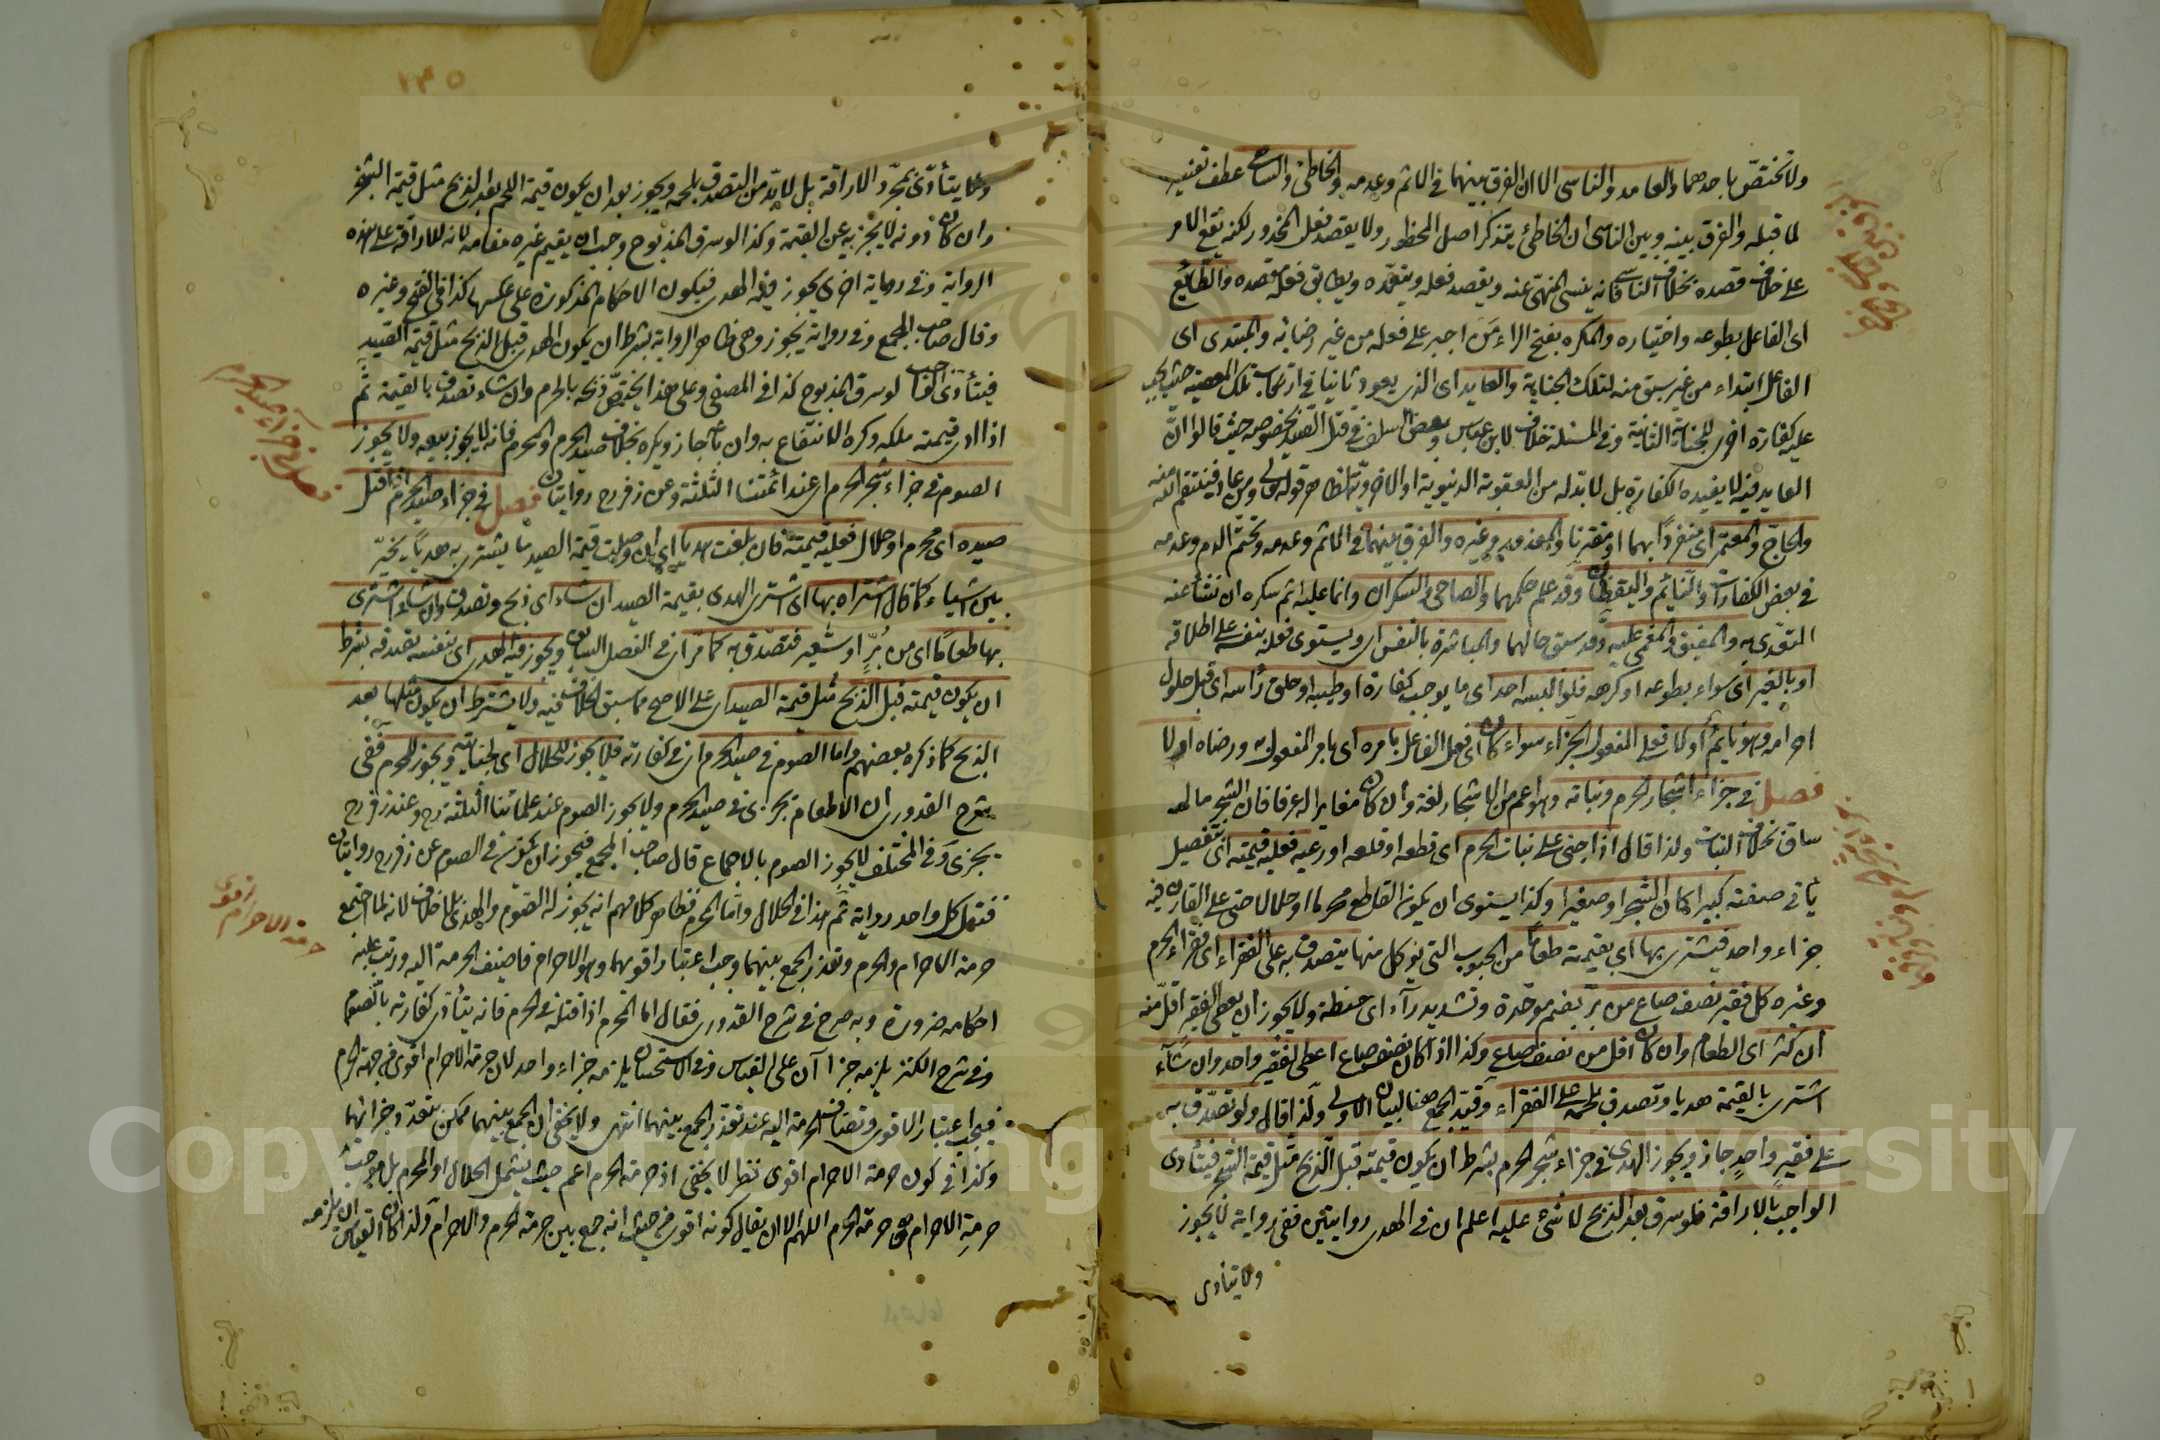 ولا تختص باحدهما والعامد والناسى الا ان الفرق بينهما فى الاثم وعدمه والخاطئ والساهى عطف تفسير
لما قبله والفرق بينه وبين الناسى ان الخاطئ يتذكر اصل المحظور ولا يقصد فعل المحذور لكنه يقع الامر
على خلاف قصده بخلاف الناسى فانه ينسى المنهى عنه ويقصد فعله ويتعمده ويطابق فعله قصده والطايع
اى الفاعل بطوعه واختياره والمكره بفتح الراء من اجبر على فعله من غير رضائه والمبتدى اى
الفاعل ابتداء من غير سبق منه لتلك الجناية والعايد اى الذى يعود ثانيا فى ارتكاب تلك المعصية حيث يجب
عليه كفارة اخرى للجناية الثانية وفى المسئلة خلاف لابن عباس وبعض السلف فى قتل الصيد بخصوصه حيث قالوا ان
العايد فيه لا يفيده الكفارة بل لا بد له من العقوبة الدنيوية او الاخروية لظاهر قوله تعالى ومن عاد فينتقم الله منه
والحاج والمعتمر اى منفردا بهما او مقترنا والمعذور وغيره والفرق بينهما فى الاثم وعدمه وتحتم الدم وعدمه
فى بعض الكفارات والنايم واليقظان وقد علم حكمهما والصاحى والسكران وانما عليه اثم سكره ان نشأ عنه
التعدى به والمفيق والمغمى عليه وقد سبق حالهما والمباشرة بالنفس اى ويستوى فعله بنفسه على اطلاقه
او بالغير اى سواء بطوعه او كرهه فلو البسه احد اى ما يوجب كفارة او طيبه او حلق رأسه اى قبل حلول
احرامه وهو نايم أو لا فعلى المفعول الجزاء سواء كان اى فعل الفاعل بامره اى بامر المفعول به ورضاه او لا
فصل فى جزاء اشجار الحرم ونباته وهو اعم من الاشجار لغة وان كان مغايرا له عرفا فان الشجر ما له
ساق بخلاف النبات ولذا قال اذا جنى على نبات الحرم اى قطعه او قلعه او رعيه فعليه قيمته اى بتفصيل
يأتى فى صفته كبيرا كان الشجر او صغيرا وكذا يستوى ان يكون القاطع محرما او حلالا حتى على القارن فيه
جزاء واحد فيشترى بها اى بقيمته طعاما من الحبوب التى يؤكل منها يتصدق به على الفقراء اى فقراء الحرم
وغيره كل فقير نصف صاع من بر بضم موحدة وتشديد راء اى حنطة ولا يجوز ان يعطى الفقير اقل منه
ان كثر اى الطعام وان كان اقل من نصف صاع وكذا اذا كان نصف صاع اعطى لفقير واحد وان شاء
اشترى بالقيمة هديا وتصدق بلحمه على الفقراء وقيد الجمع هنا لبيان الاولى ولذا قال ولو تصدق به
على فقير واحد جاز ويجوز الهدى فى جزاء شجر الحرم بشرط ان يكون قيمته قبل الذبح مثل قيمة الشجر فيتأدى
الواجب بالاراقة فلو سرق بعد الذبح لا شئ عليه اعلم ان فى الهدى روايتين ففى رواية لا يجوز
ولا يتأدى
٢٣٥
ولا يتأدى بمجرد الاراقة بل لا بد من التصدق بلحمه ويجوز بعد ان يكون قيمة اللحم بعد الذبح مثل قيمة الشجر
وان كان دونه لا يجزيه عن القيمة وكذا لو سرق المذبوح وجب ان يقيم غيره مقامه لانه للاراقة على هذه
الرواية وفى رواية اخرى يجوز فيه الهدى فيكون الاحكام المذكورة على عكسها كذا فى الفتح وغيره
وقال صاحب المجمع وفى رواية يجوز وهى ظاهر الرواية بشرط ان يكون الهدى قبل الذبح مثل قيمة الصيد
فيتأدى الواجب لو سرق المذبوح كذا فى المصفى وعلى هذا يختص ذبحه بالحرم وان شاء تصدق بالقيمة ثم
اذا ادى قيمته ملكه وكره الانتفاع به وان باعه جاز ويكره بخلاف صيد الحرم والمحرم فانه لا يجوز بيعه ولا يجوز
الصوم فى جزاء شجر الحرم اى عند ائمتنا الثلثة وعن زفر رح روايتان فصل فى جزاء صيد الحرم اذا قتل
صيده اى محرم او حلال فعليه قيمته فان بلغت هديا اى ان وصلت قيمة الصيد ما يشترى به هديا يخير
بين اشياء كما قال اشتراه بها اى اشترى الهدى بقيمة الصيد ان شاء اى ذبح وتصدق وان شاء اشترى
بها طعاما اى من بر او شعير فتصدق به كما مر اى فى الفصل السابق ويجوز فيه الهدى اى بنفسه تصدقه بشرط
ان يكون قيمته قبل الذبح مثل قيمة الصيد اى على الاصح مما سبق الخلاف فيه ولا يشترط ان يكون مثلها بعد
الذبح كما ذكره بعضهم واما الصوم فى صيد الحرم اى فى كفارته فلا يجوز للحلال اى لجنايته ويجوز للمحرم ففى
شرح القدورى ان الاطعام يجزى فى صيد الحرم ولا يجوز الصوم عند علمائنا الثلثة رح وعند زفر رح
يجزى وفى المختلف لا يجوز الصوم بالاجماع قال صاحب المجمع فيجوز ان يكون فى الصوم عن زفر رح روايتان
فنقل كل واحد رواية ثم هذا فى الحلال واما المحرم فظاهر كلامهم انه يجوز له الصوم والهدى بلا خلاف لانه لما اجتمع
حرمة الاحرام والحرم وتعذر الجمع بينهما وجب اعتبار اقواهما وهو الاحرام فاضيف الحرمة اليه ورتب عليه
احكامه ضرورة وبه صرح فى شرح القدورى فقال اما المحرم اذا قتله فى الحرم فانه يتأدى كفارته بالصوم
وفى شرح الكنز يلزمه جزاآن على القياس وفى الاستحسان يلزمه جزاء واحد لان حرمة الاحرام اقوى من جهة الحرم
فيجب اعتبار الاقوى وتضاف الحرمة اليه عند تعذر الجمع بينهما انتهى ولا يخفى ان الجمع بينهما ممكن بتعدد جزائهما
وكذا فى كون حرمة الاحرام اقوى نظر لا يخفى اذ حرمة الحرم اعم حيث يشمل الحلال او المحرم بل
حرمة الاحرام حرمة الحرم اللهم الا ان يقال كونه اقوى من حيث انه جمع بين حرمة الحرم والاحرام ولذا كان القياس ان يلزمه
حرمة الاحرام اقوى
Copyright © King Saud University